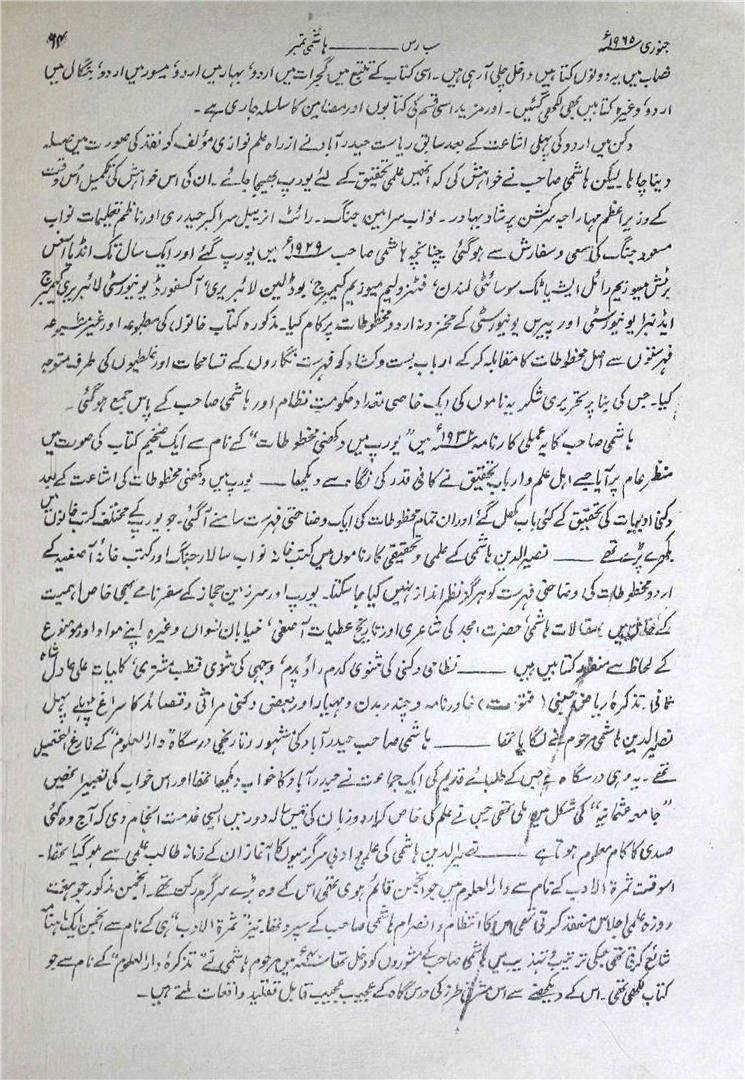 جنوری ۱۹۶۵ء سب رس ــــــ ہاشمی نمبر ۶۴
نصاب میں یہ دونوں کتابیں داخل چلی آرہی ہیں۔ اسی کتاب کے تتبع میں گجرات میں اردو‘ بہار میں اردو‘ میسور میں اردو‘ بنگال میں
اردو‘ وغیرہ کتابیں بھی لکھی گئیں۔ اور مزید اسی قسم کی کتابوں اور مضامین کا سلسلہ جاری ہے۔
دکن میں اردو کی پہلی اشاعت کے بعد سابق ریاست حیدرآباد نے ازراہ علم نوازی مؤلف کو نقد کی صورت میں صلہ
دینا چاہا۔ لیکن ہاشمی صاحب نے خواہش کی کہ انہیں علمی تحقیق کے لئے یورپ بھیجا جائے۔ ان کی اس خواہش کی تکمیل اس وقت
کے وزیر اعظم مہاراجہ سرکشن پرشاد بہادر۔ نواب سر امین جنگ۔ رائٹ آنریبل سر اکبر حیدری اور ناظم تعلیمات نواب
مسعود جنگ کی سعی و سفارش سے ہو گئی چنانچہ ہاشمی صاحب ۱۹۲۹ء میں یورپ گئے اور ایک سال تک انڈیا آفس
برٹش میوزیم رائل ایشیاٹک سوسائٹی لندن‘ فٹنر ولیم میوزیم کیمبرج‘ بوڈلین لائبریری‘ آکسفورڈ یونیورسٹی لائبریری کیمبرج
ایڈنبرا یونیورسٹی اور پیرس یونیورسٹی کے مخزونہ اردو مخطوطات پر کام کیا۔ مذکورہ کتاب خانوں کی مطبوعہ اور غیر مطبوعہ
فہرستوں سے اصل مخطوطات کا مقابلہ کرکے ارباب بست و کشاد کو فہرست نگاروں کے تسامحات اور غلطیوں کی طرف متوجہ
کیا۔ جس کی بنا پر تحریری شکریہ ناموں کی ایک خاصی تعداد حکومت نظام اور ہاشمی صاحب کے پاس جمع ہو گئی۔
ہاشمی صاحب کا یہ عملی کارنامہ ۱۹۳۲ء میں ”یورپ میں دکھنی مخطوطات“ کے نام سے ایک ضخیم کتاب کی صورت میں
منظر عام پر آیا جسے اہل علم و ارباب تحقیق نے کافی قدر کی نگاہ سے دیکھا ــــ یورپ میں دکھنی مخطوطات کی اشاعت کے بعد
دکنی ادبیات کی تحقیق کے کئی باب کھل گئے اور ان تمام مخطوطات کی ایک وضاحتی فہرست سامنے آگئی۔ جو یورپ کے مختلف کتب خانوں میں
بکھرے پڑے تھے ــــ نصیر الدین ہاشمی کے علمی و تحقیقی کارناموں میں کتب خانہ نواب سالار جنگ اور کتب خانہ آصفیہ کے
اردو مخطوطات کی وضاحتی فہرست کو ہرگز نظر انداز نہیں کیا جا سکتا۔ یورپ اور سرزمین حجاز کے سفرنامے بھی خاص اہمیت
کے حامل ہیں مقالات ہاشمی‘ حضرت امجد کی شاعری اور تاریخ عطیات آصفی‘ خیابان نسواں وغیرہ اپنے مواد اور موضوع
کے لحاظ سے منفرد کتابیں ہیں ــــ نظامی دکنی کی مثنوی کدم راؤ پدم‘ وجہی کی مثنوی قطب مشتری‘ کلیات علی عادل شاہ
ثانی‘ تذکرۂ ریاض حسینی خاور نامہ و چندر بدن و مہیار اور بعض دکنی مراثی و قصائد کا سراغ پہلے پہل
نصیر الدین ہاشمی مرحوم نے لگایا تھا ــــ ہاشمی صاحب حیدرآباد کی مشہور و تاریخی درسگاہ ”دارالعلوم“ کے فارغ التحصیل
تھے۔ یہ وہی درسگاہ ہے جس کے طلبائے قدیم کی ایک جماعت نے حیدرآباد کا خواب دیکھا تھا اور اس خواب کی تعبیر انھیں
”جامعہ عثمانیہ“ کی شکل میں ملی تھی جس نے علم کی خاص کر اردو زبان کی تیس سالہ دور میں ایسی خدمت انجام دی کہ آج وہ کئی
صدی کا کام معلوم ہوتا ہے ــــ نصیر الدین ہاشمی کی علمی و ادبی سرگرمیوں کا آغاز ان کے زمانہ طالب علمی سے ہو گیا تھا۔
اسوقت ثمرۃ الادب کے نام سے دارالعلوم میں جو انجمن قائم ہوی تھی اس کے وہ بڑے سرگرم رکن تھے۔ انجمن مذکور جو ہفت
روزہ علمی اجلاس منعقد کرتی تھی اس کا انتظام و انصرام ہاشمی صاحب کے سپرد تھا۔ نیز ”ثمرۃ الادب“ ہی کے نام سے انجمن ایک ماہنامہ
شائع کرتی تھی جسکی ترتیب و تہذیب میں ہاشمی صاحب کے مشوروں کو دخل تھا میں مرحوم ہاشمی نے ”تذکرۂ دارالعلوم“ کے نام سے جو
کتاب لکھی تھی۔ اس کے دیکھنے سے اس مشرقی طرز کی درس گاہ کے عجیب عجیب قابل تقلید واقعات ملتے ہیں۔